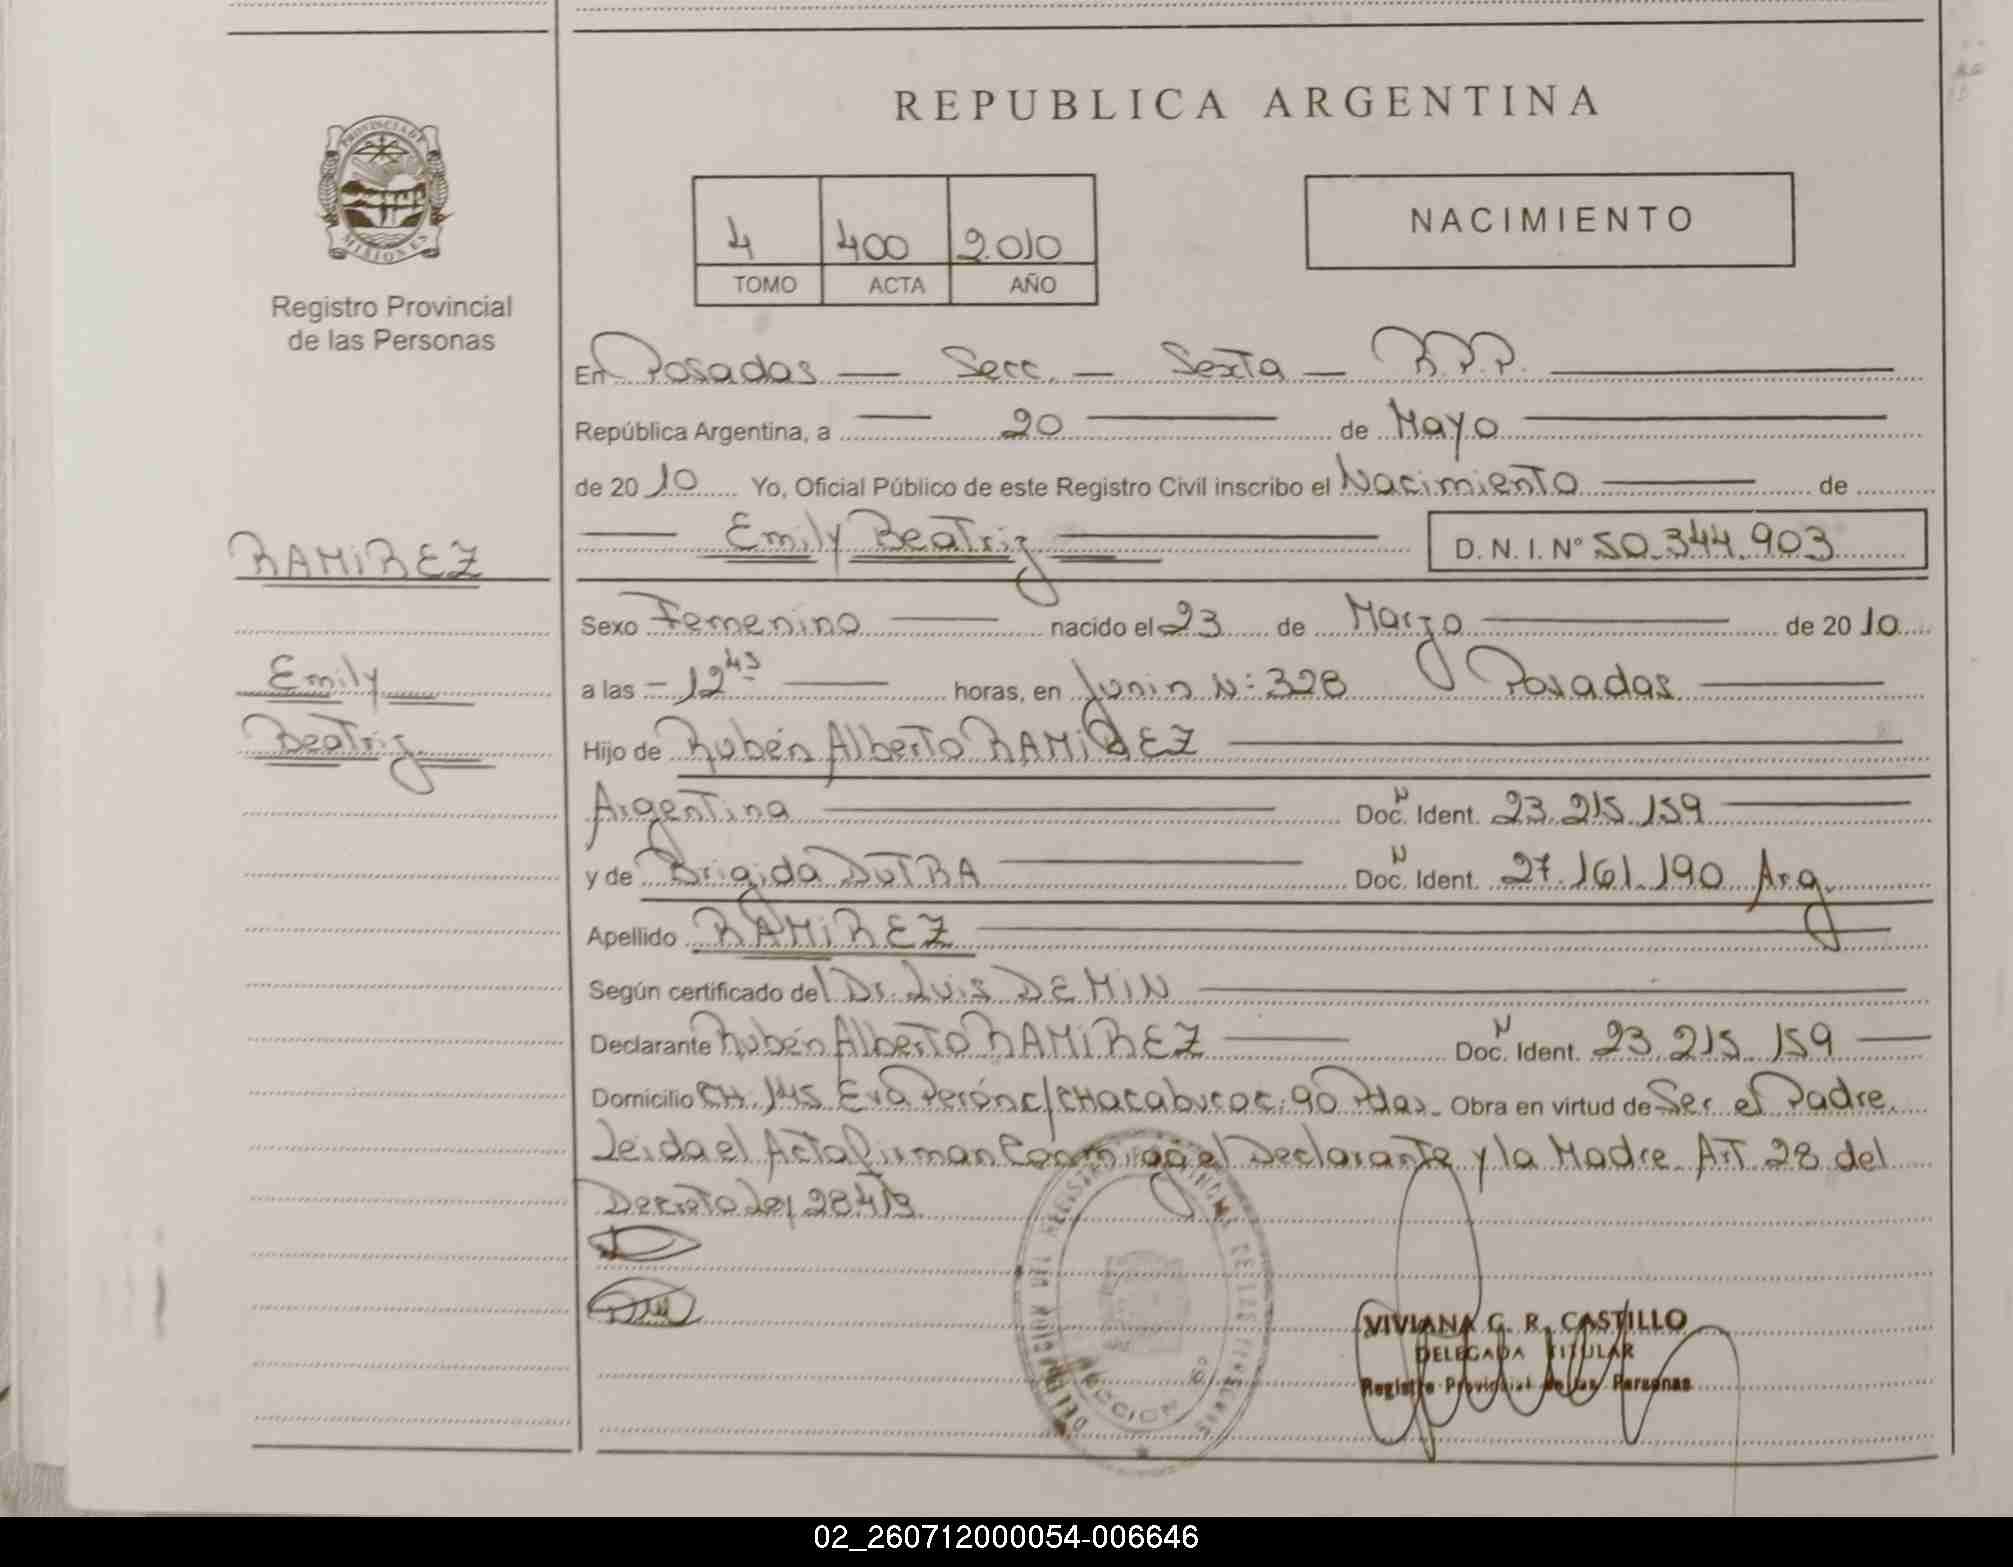 REPUBLICA ARGENTINA
PROVINCIA DE
MISIONES
Registro Provincial
de las Personas
4 400 2.010
TOMO ACTA AÑO
NACIMIENTO
En Posadas — Secc. — Sexta — R.P.P.
República Argentina, a — 20 — de Mayo
de 20 10 Yo, Oficial Público de este Registro Civil inscribo el Nacimiento — de
Emily Beatriz D.N.I. N° 50.344.903
RAMIREZ
Emily
Beatriz
Sexo Femenino — nacido el 23 de Marzo — de 20 10
a las – 12 45 — horas, en Junin N: 328 Posadas
Hijo de Rubén Alberto RAMIREZ
Argentina — Doc. N Ident. 23.215.159
y de Brigida DUTRA — Doc. N Ident. 27.161.190 Arg.
Apellido RAMIREZ
Según certificado del Dr. Luis DEMIN
Declarante Rubén Alberto RAMIREZ — Doc. N Ident. 23.215.159 —
Domicilio CH. 145 Eva Perón c/ CHacabuco c. 90 Pdas. Obra en virtud de Ser el Padre
Leida el Acta firman Conmigo el Declarante y la Madre Art 28 del
Decreto Ley
VIVIANA G. R. CASTILLO
DELEGADA TITULAR
Registro Provincial de las Personas
SECCION 6º
02_260712000054-006646